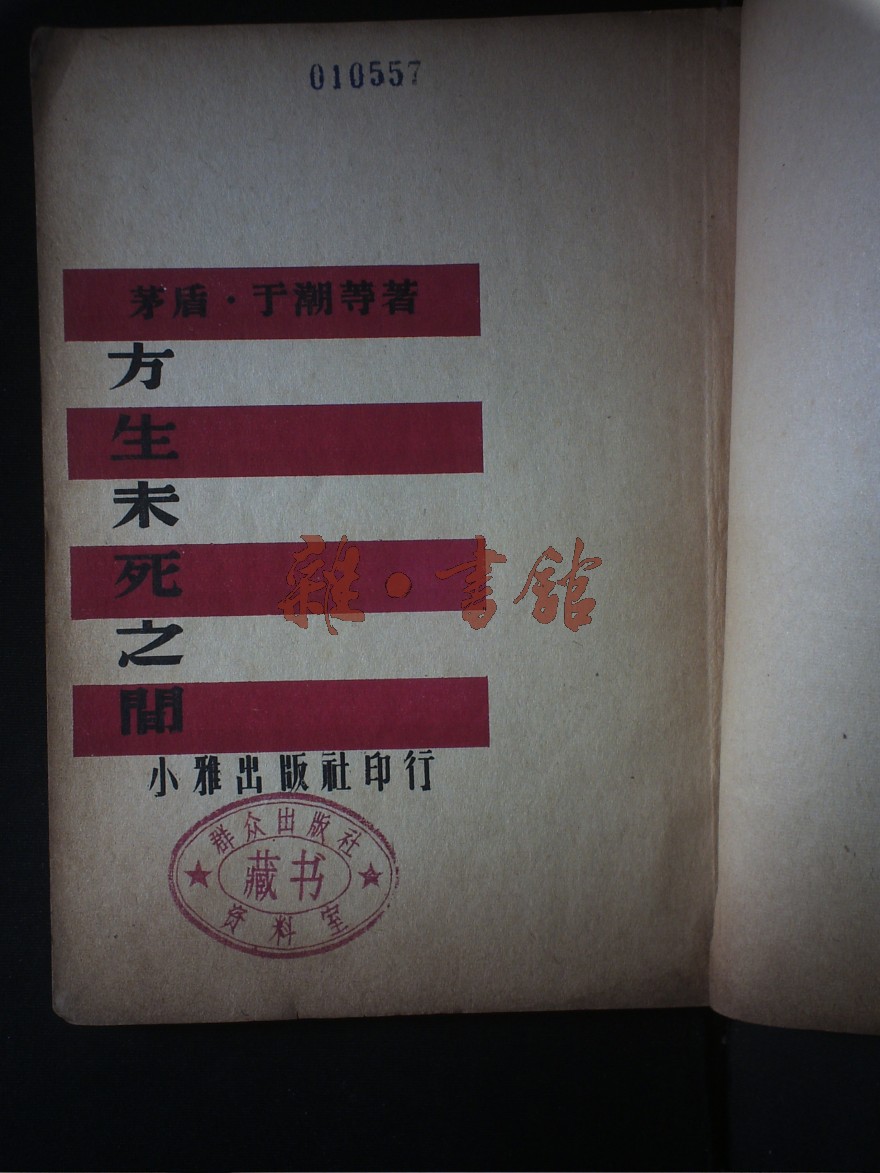 010557
茅盾·于潮等著
方生未死之間
雜·書館
小雅出版社印行
群众出版社
藏书
资料室